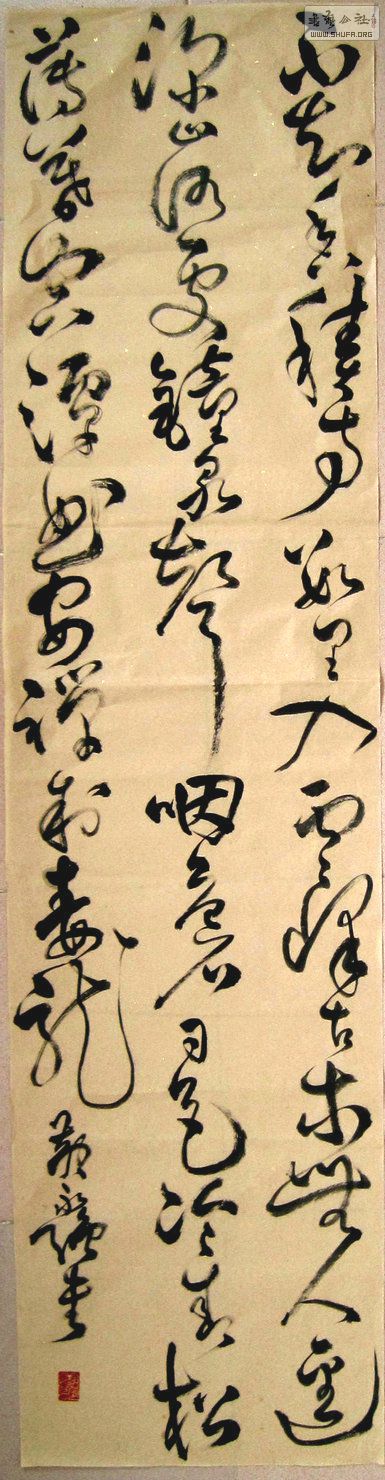 書藝公社
WWW.SHUFA.ORG
不知香積寺數里入雲峰古木無人逕
深山何處鐘泉聲咽危石日色冷青松
薄暮空潭曲安禪制毒龍
書